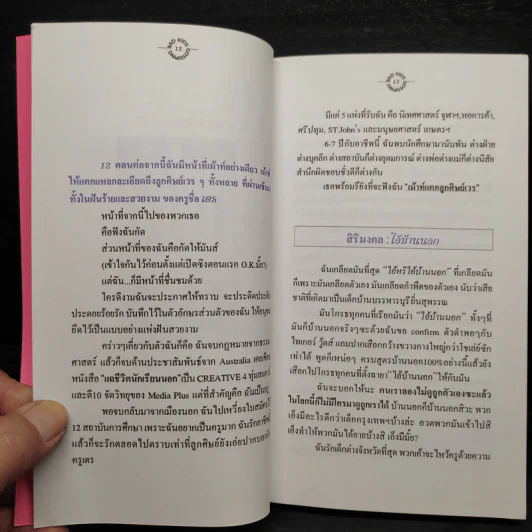 BAD KIDS
12
GOSSIPING
12 ตอนต่อจากนี้ฉันมีหน้าที่เม้าท์อย่างเดียว
ให้แตกแหลกละเอียดถึงลูกศิษย์เวร ๆ ทั้งหลาย ที่ผ่านเข้ามา
ทั้งในฝันร้ายและสวยงาม ของครูชื่อ เดร
หน้าที่จากนี้ไปของพวกเธอ
คือฟังฉันกัด
ส่วนหน้าที่ของฉันคือกัดให้มันส์
(เข้าใจกันไว้ก่อนตั้งแต่เปิดซิงตอนแรก O.K.มั้ย?)
แต่ฉัน...ก็มีหน้าที่ชื่นชมด้วย
ใครดีงามฉันจะประกาศให้ทราบ จะประดิดประดับ
ประดอยร้อยรัก บันทึกไว้ในตัวอักษรส่วนตัวของฉัน
ยึดไว้เป็นแบบอย่างแห่งฝันสวยงาม
คร่าวๆเกี่ยวกับตัวฉันก็คือ ฉันจบกฎหมายจากธรรม
ศาสตร์ แล้วก็จบด้านประชาสัมพันธ์จาก Australia เคยเขียน
หนังสือ "แด่ชีวิตนักเรียนนอก"เป็น CREATIVE 4 ทุ่มสแควร์
และตี10 จัดวิทยุของ Media Plus แต่ที่สำคัญคือ
พอจบกลับมาจากเมืองนอก ฉันไปเหวี่ยงใบสมัครไว้
12 สถาบันการศึกษา เพราะฉันอยากเป็นครูมาก ฉันรักอาชีพนี้
แล้วก็จะรักตลอดไปตราบเท่าที่ลูกศิษย์ยังเอ่ยปากบอก
ครูเดร
BAD KIDS
13
GOSSIPING
มีแค่ 5 แห่งที่รับฉัน คือ นิเทศศาสตร์ จุฬาฯ,หอการค้า,
ศรีปทุม, ST.John's และมนุษยศาสตร์ เกษตรฯ
6-7 ปีกับอาชีพนี้ ฉันพบนักศึกษามานับพัน ต่างฝ่าย
ต่างบุคลิก ต่างสถาบันก็ต่างอุดมการณ์ ต่างพ่อต่างแม่ก็ต่างนิสัย
สำนึกผิดชอบชั่วดีก็ต่างกัน
เธอพร้อมรึยังที่จะฟังฉัน "เม้าท์แตกลูกศิษย์เวร"
สิริมงคล : ไอ้บ้านนอก
ฉันเกลียดมันที่สุด "ไอ้หรีไอ้บ้านนอก" ที่เกลียดมัน
ก็เพราะมันเกลียดตัวเอง มันเกลียดกำพืดของตัวเอง นับว่าเสีย
ชาติที่เกิดมาเป็นเด็กบ้านบรรหารบุรีถิ่นสุพรรณ
มันโกรธทุกคนที่เรียกมันว่า "ไอ้บ้านนอก" ทั้งๆที่
มันก็บ้านนอกจริงๆซะด้วยฉันขอ confirm ตัวดำพอๆกับ
ไทเกอร์ วู้ดส์ แถมปากเสือกกว้างขวางกางใหญ่กว่าโชเล่ย์ซัก
เท่าได้ พูดก็เหน่อๆ ครบสูตรบ้านนอก100%อย่างนี้แล้วยัง
เสือกไปโกรธทุกคนที่ตั้งฉายา"ไอ้บ้านนอก"ให้กับมัน
ฉันจะบอกให้นะ คนเราลองไม่ดูถูกตัวเองซะแล้ว
ในโลกนี้ก็ไม่มีใครมาดูถูกเราได้ บ้านนอกก็บ้านนอกสิวะ พวก
เอ็งมีอะไรดีกว่าเด็กกรุงเทพฯบ้างล่ะ อวดพวกมันเข้าไปสิ
เอ็งทำให้พวกมันได้อายบ้างสิ เอ็งมีมั้ย?
ฉันรักเด็กต่างจังหวัดที่สุด พวกเค้าจะไหว้ครูด้วยความ